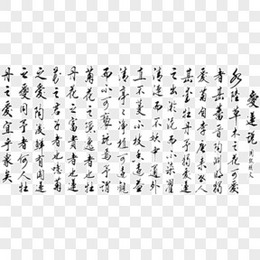 愛蓮說
水陸草木之花可愛
者甚蕃晉陶淵明獨
愛菊自李唐來世人
甚愛牡丹予獨愛蓮
之出淤泥而不染濯
清漣而不妖中通外
直不蔓不枝香遠益
清亭亭淨植可遠觀
而不可褻玩焉予謂
菊花之隱逸者也牡
丹花之富貴者也蓮
花之君子者也噫菊
之愛陶後鮮有聞蓮
之愛同予者何人牡
丹之愛宜乎眾矣